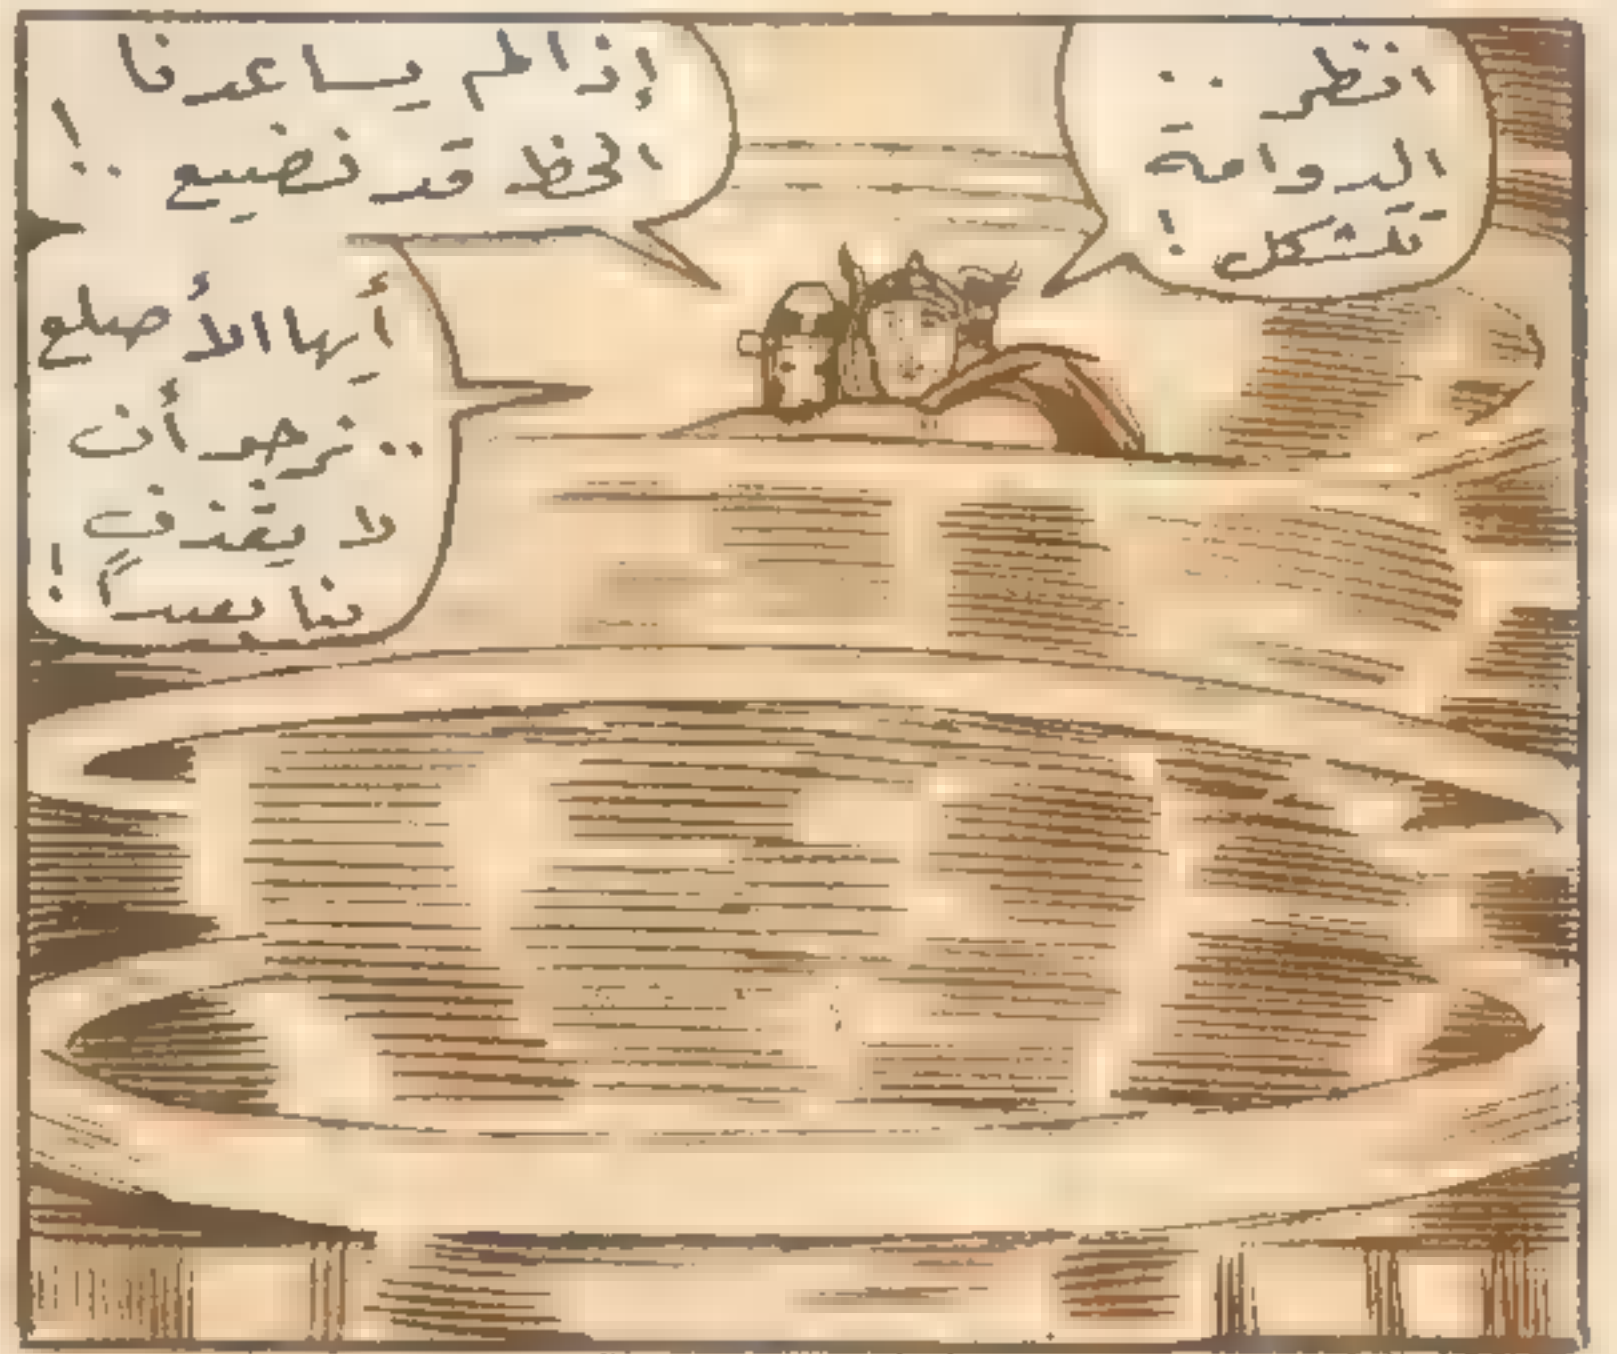 انظر ..
الدوامة
تتشكل !
إذا لم يساعدنا
الحظ قد نضيع ..!
أيها الأصلع
.. نرجو أن
لا يقذف
بنا بعيداً !